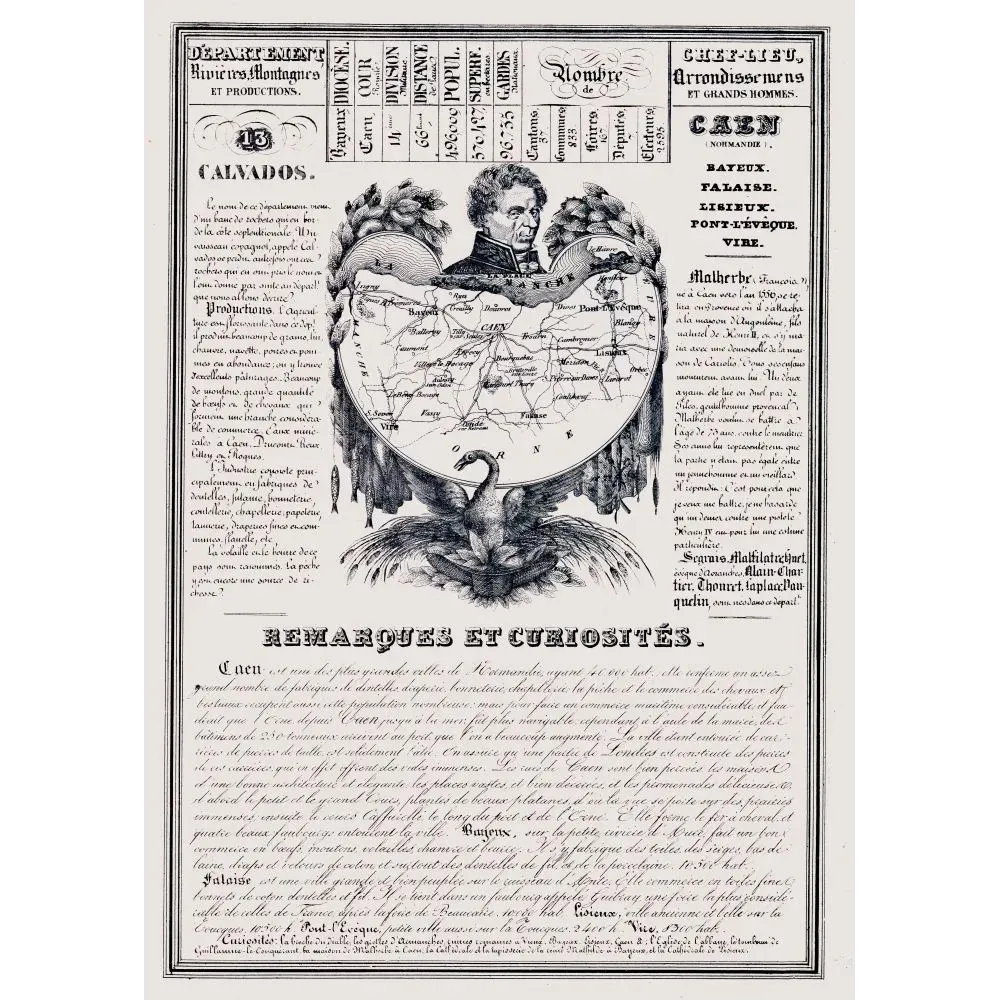 DÉPARTEMENT
Rivières, Montagnes
ET PRODUCTIONS.
13
CALVADOS.
Le nom de ce département vient
d'un banc de rochers qui en bor-
de la côte septentrionale. Un
vaisseau espagnol, appelé Cal-
vados se perdit autrefois sur ces
rochers qui en ont pris le nom et
l'ont donné par suite au départ.t
que nous allons décrire.
Productions. L'agricul-
ture est florissante dans ce dép.t
il produit beaucoup de grains, lin
chanvre, navette, poires et pom
mes en abondance; on y trouve
d'excellents pâturages. Beaucoup
de moutons, grande quantité
de bœufs et de chevaux qui
forment une branche considéra-
ble de commerce. Eaux miné-
rales à Caen, Brucourt, Vieux
et Roques.
L'Industrie consiste prin-
cipalement en fabriques de
dentelles, futaine, bonneterie,
coutellerie, chapellerie, papeterie,
tannerie, draperies fines et com-
munes, flanelle, etc.
La volaille et le beurre de ce
pays sont renommés. La pêche
y est encore une source de ri-
chesse.
DIOCÈSE.
Bayeux
COUR
Royale
Caen.
DIVISION
Militaire
14
DISTANCE
de Paris
66
POPUL.
496000
SUPERF.
en hectares
570,427
GARDES
Nationaux
96,735
Nombre
de
Cantons
37
Communes
833
Foires
167
Députés
Electeurs
2595
CHEF-LIEU,
Arrondissemens
ET GRANDS HOMMES.
CAEN
(NORMANDIE).
BAYEUX.
FALAISE.
LISIEUX.
PONT-L'ÉVÊQUE.
VIRE.
Malherbe (François)
né à Caen vers l'an 1556, se re-
tira en Provence où il s'attacha
à la maison d'Angoulême, fils
naturel de Henri II, et s'y ma
ria avec une demoiselle de la mai
son de Coriolis. Tous ses enfans
moururent avant lui. Un d'eux
ayant été tué en duel par de
Piles, gentilhomme provençal,
Malherbe voulut se battre à
l'âge de 73 ans, contre le meurtrier.
Ses amis lui représentèrent que
la partie n'était pas égale entre
un jeune homme et un vieillard
Il répondit: C'est pour cela que
je veux me battre, je ne hasarde
qu'un denier contre une pistole
Henri IV eut pour lui une estime
particulière.
Segrais, Malfilatre, Huet,
évêque d'Avranches, Alain-Char
tier, Thouret, Laplace, Vau-
quelin, sont nés dans ce départ.t
LA PLACE
LA MANCHE
le Havre
Honfleur
EURE
MANCHE
ORNE
Isigny
Trévières
Bayeux
Rye
Creuilly
Douvres
Dives
Pont-l'Evêque
Balleroy
Tilly
CAEN
Troarn
Blangy
Caumont
Evrecy
Cambremer
Lisieux
Villers le Bocage
Bourguébus
Mézidon
Orbec
Aulnay
Bretteville
S. Pierre sur Dives
Livarot
Le Bény Bocage
Harcourt Thury
Coulibœuf
S. Sever
Vassy
Falaise
Vire
Condé
sur Noireau
REMARQUES ET CURIOSITÉS.
Caen est une des plus grandes villes de Normandie, ayant 40000 hab. elle renferme un assez
grand nombre de fabriques de dentelles, draperie, bonneterie, chapellerie, la pêche et le commerce des chevaux et
bestiaux occupent aussi cette population nombreuse; mais pour faire un commerce maritime considérable il fau-
drait que l'Orne depuis Caen jusqu'à la mer fût plus navigable, cependant à l'aide de la marée, des
bâtimens de 250 tonneaux arrivent au port, que l'on a beaucoup augmenté. La ville étant entourée de car-
rières de pierres de taille, est solidement bâtie. On assure qu'une partie de Londres est construite des pierres
de ces carrières, qui en effet offrent des vides immenses. Les rues de Caen sont bien percées, les maisons
d'une bonne architecture et élégante, les places vastes, et bien décorées, et les promenades délicieuses
d'abord le petit et le grand Cours, plantés de beaux platanes, d'où la vue se porte sur des prairies
immenses, ensuite le cours Caffarelli, le long du port et de l'Orne. Elle forme le fer à cheval, et
quatre beaux faubourgs entourent la ville. Bayeux, sur la petite rivière d'Aure, fait un bon
commerce en bœufs, moutons, volailles, chanvre et beurre. Il s'y fabrique des toiles, des serges, bas de
laine, draps et velours de coton et surtout des dentelles de fil, et de la porcelaine. 10.500 hab.
Falaise est une ville grande et bien peuplée sur le ruisseau d'Ante. Elle commerce en toiles fines
bonnets de coton, dentelles et fil. Il se tient dans un faubourg appelé Guibray, une foire la plus considé-
rable de celles de France, après la foire de Beaucaire. hab. Lisieux, ville ancienne et belle sur la
Toucques, 10.500 h. Pont-l'Evêque, petite ville aussi sur la Toucques. 2400 h. Vire, 8500 hab.
Curiosités: la broche du diable, les grottes d'Aemanches, ruines romaines à Vieux, Bayeux, Lisieux, Caen &; l'Eglise de l'abbaye, le tombeau de
Guillaume-le-Conquérant, la maison de Malherbe à Caen, la Cathédrale et la tapisserie de la reine Mathilde à Bayeux, et la Cathédrale de Lisieux.